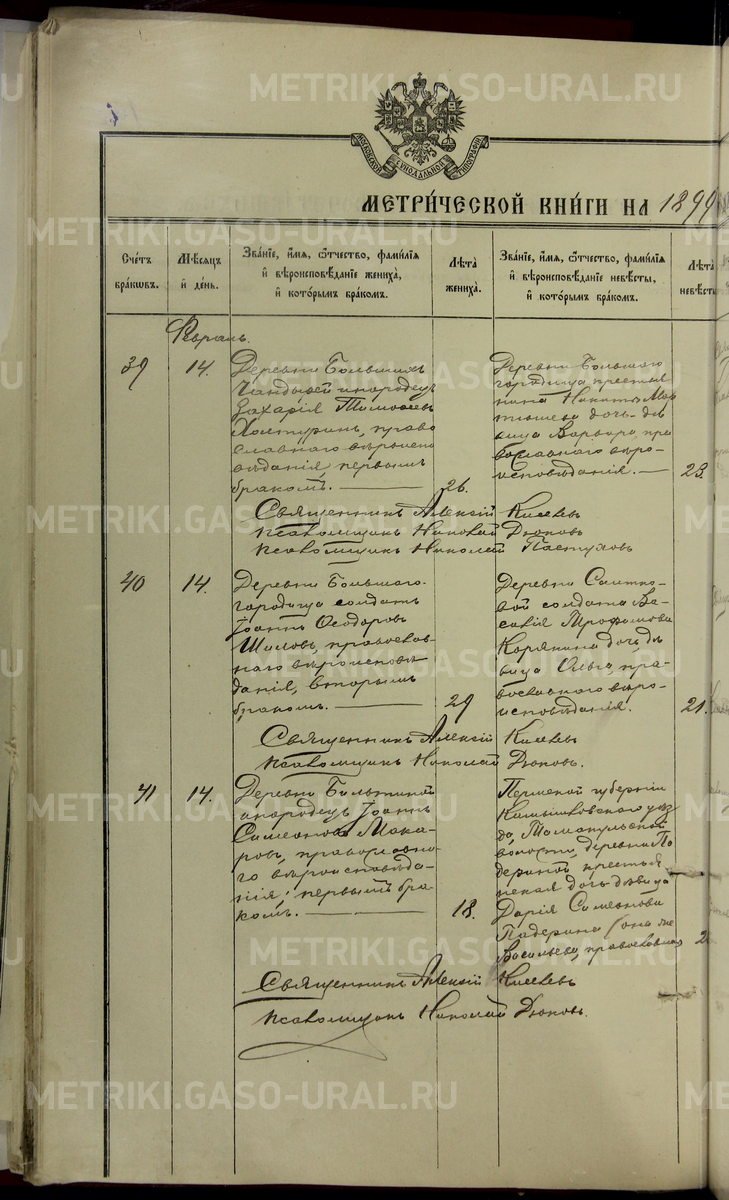 МОСКОВСКОЙ СУНОДАЛЬНОЙ ТИПОГРАФІИ
МЕТРИ́ЧЕСКОЙ КНИ́ГИ НА 1899
Сче́тъ бра́кѡвъ.
Мѣ́сяцъ и҆ де́нь.
Зва́нїе, и҆́мя, ѻ҆́тчество, фами́лїя
и҆ вѣроисповѣ́данїе жениха̀,
и҆ кото́рымъ бра́комъ.
Лѣ́та жениха̀.
Зва́нїе, и҆́мя, ѻ҆́тчество, фами́лїя
и҆ вѣроисповѣ́данїе невѣ́сты,
и҆ кото́рымъ бра́комъ.
Лѣ́та невѣ́сты
Февраль.
39
14.
Деревни Большихъ
инородецъ
Захарія Тимоѳеевъ
право
славнаго вѣроиспо
вѣданія, первымъ
бракомъ.
26.
Деревни Большого
городища крестья
нина Никиты Мар
тышева дочь дѣ
вица Варвара, пра
вославнаго вѣро-
исповѣданія.
23.
Священникъ Алексій Киселевъ
Псаломщикъ Николай Дюковъ
Псаломщикъ Николай Пастуховъ
40
14.
Деревни Большого-
городища солдатъ
Іоаннъ Ѳеодоровъ
Шиловъ, православ
наго вѣроисповѣ
данія, вторымъ
бракомъ.
29
Деревни
солдата Ва
силія Трофимова
Корякина дочь дѣ
вица Ольга, пра
вославнаго вѣро-
исповѣданія.
21.
Священникъ Алексій Киселевъ
Псаломщикъ Николай Дюковъ.
41
14.
Деревни
инородецъ Іоаннъ
Симеоновъ Мака
ровъ, православна
го вѣроисповѣда
нія, первымъ бра
комъ.
18.
Пермской губерніи
Камышловскаго уѣз
да,
волости, деревни Па
дериной крестья
нская дочь дѣвица
Дарія Симеонова
Падерина (она же
Васильева, православнаго
Священникъ Алексій Киселевъ
Псаломщикъ Николай Дюковъ.
METRIKI.GASO-URAL.RU